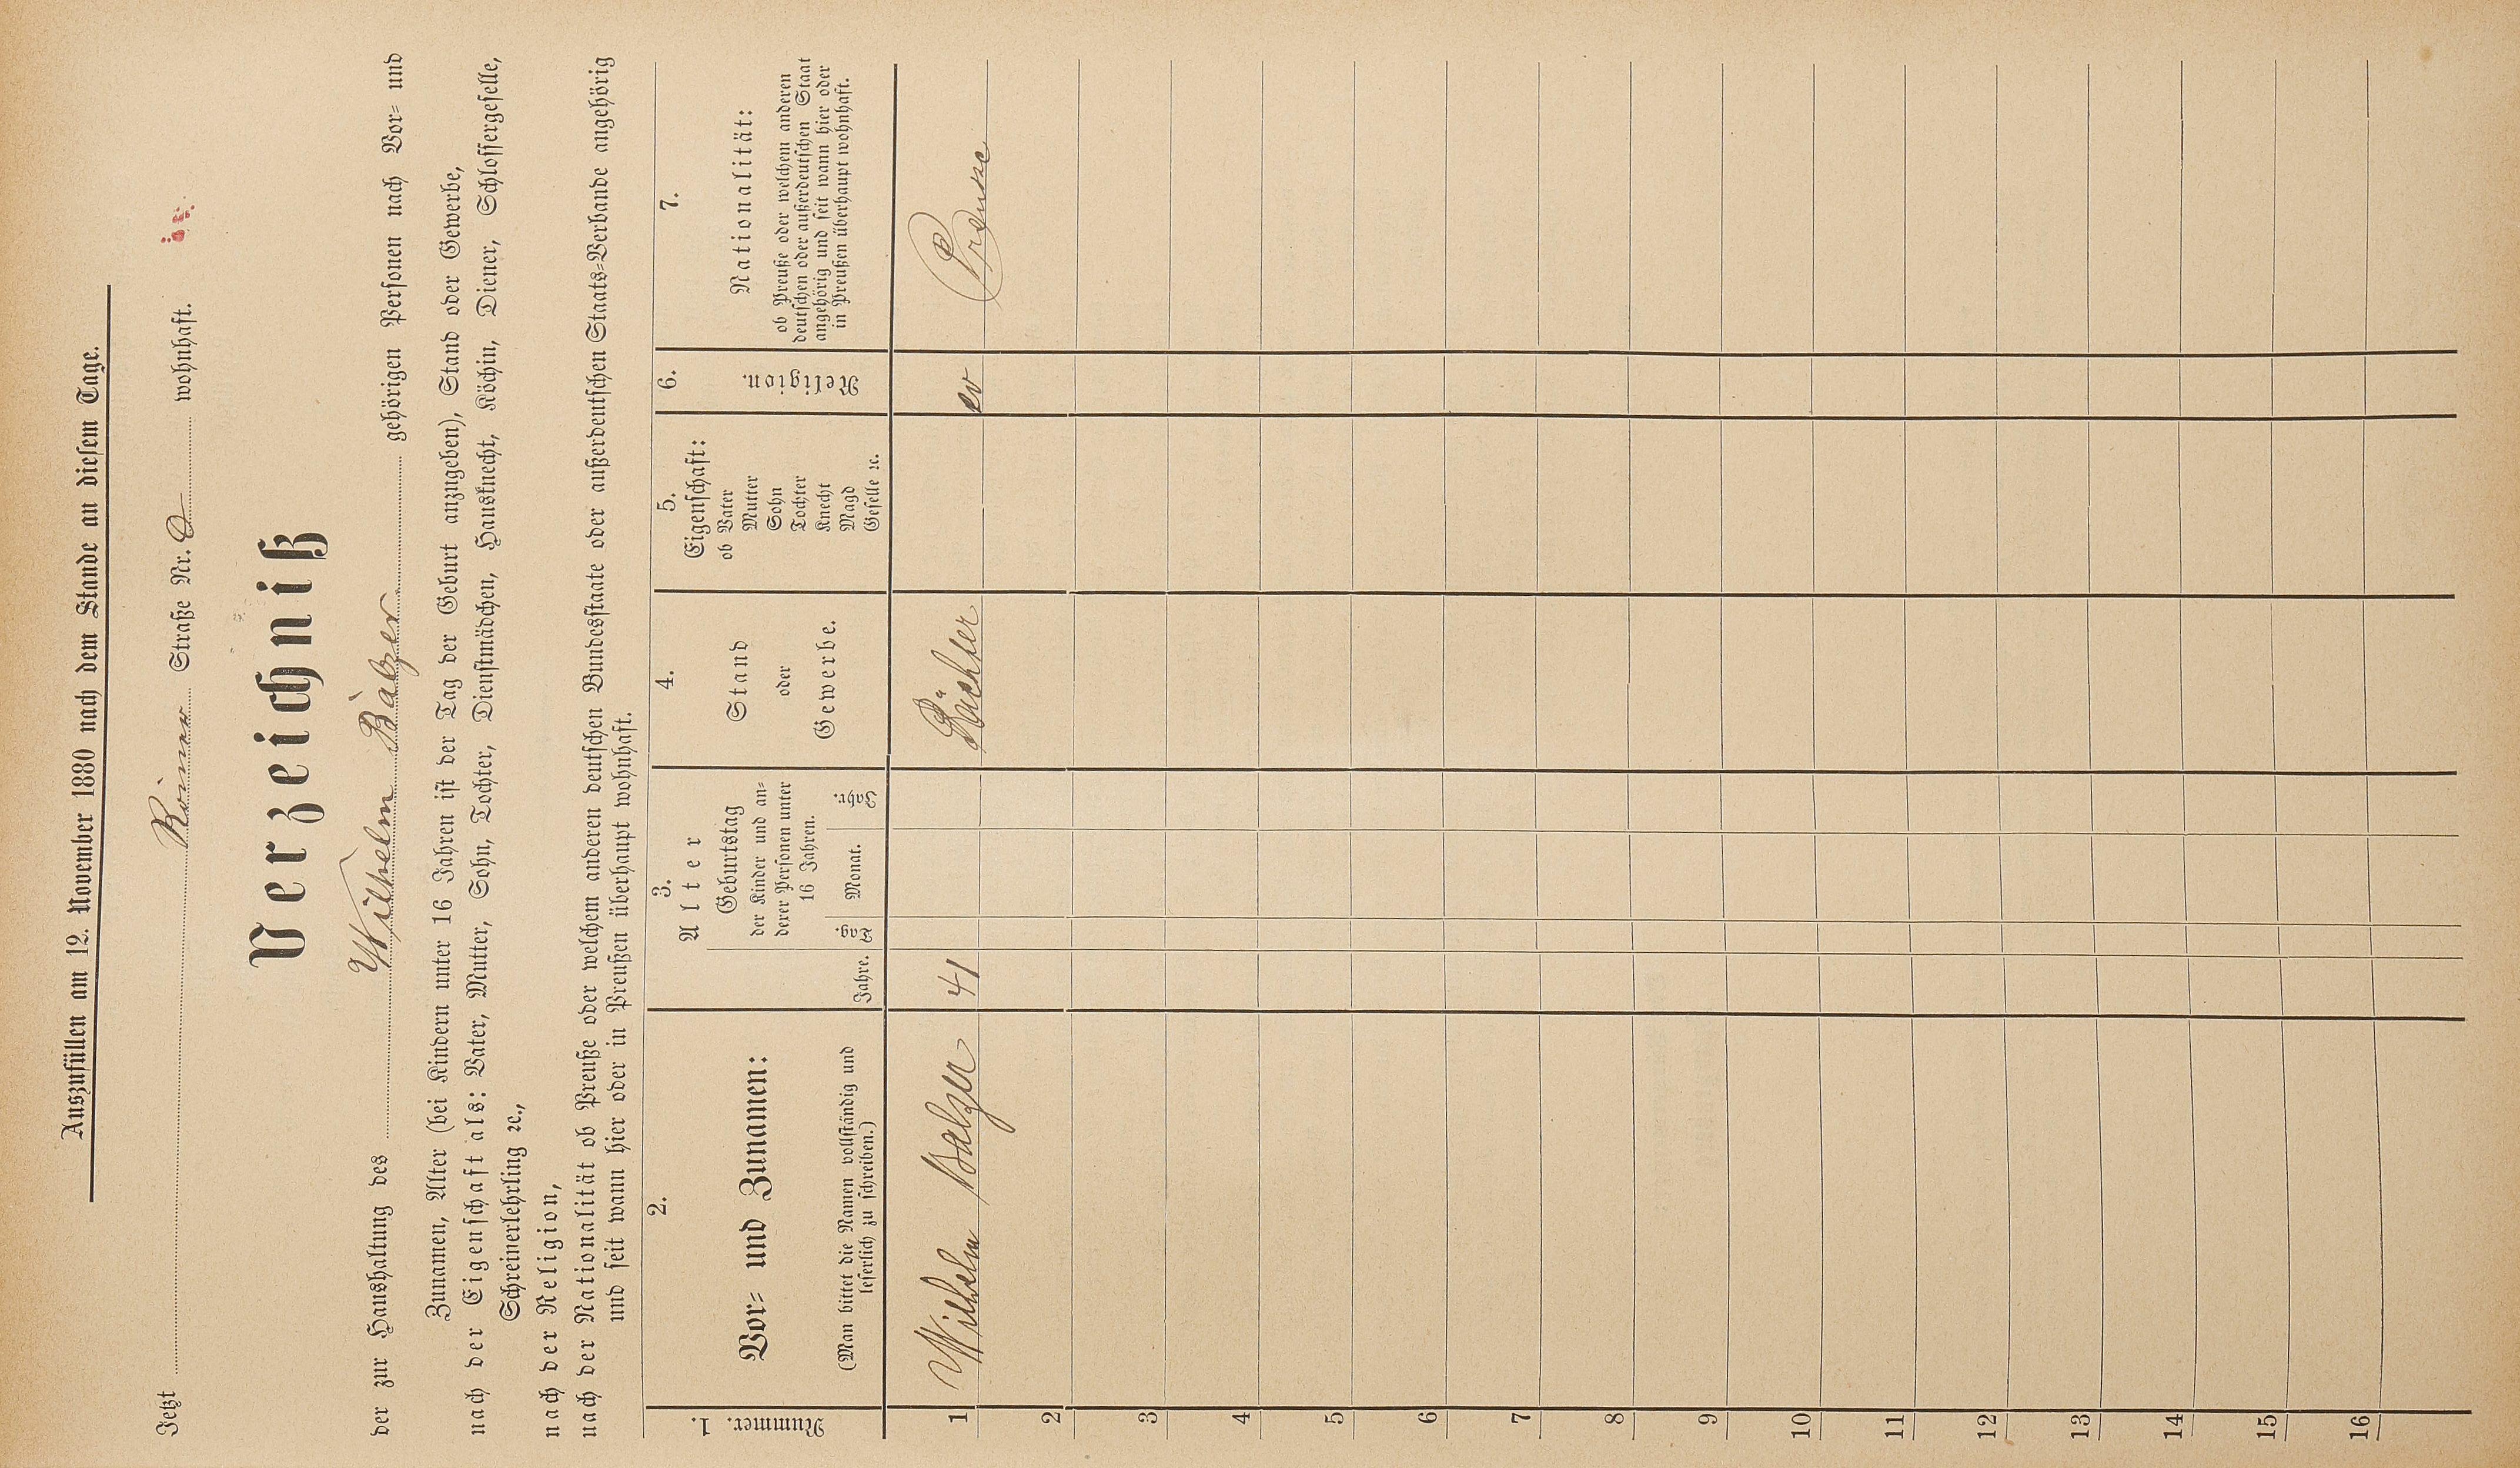 Auszufüllen am 12. November 1880 nach dem Stande an diesem Tage.
Jetzt Römer Straße Nr. 8 wohnhaft.
Verzeichniß
der zur Haushaltung des Wilhelm Balzer gehörigen Personen nach Vor- und
Zunamen, Alter (bei Kindern unter 16 Jahren ist der Tag der Geburt anzugeben), Stand oder Gewerbe,
nach der Eigenschaft als: Vater, Mutter, Sohn, Tochter, Dienstmädchen, Hausknecht, Köchin, Diener, Schlossergeselle,
Schreinerlehrling ꝛc.,
nach der Religion,
nach der Nationalität ob Preuße oder welchem anderen deutschen Bundesstaate oder außerdeutschen Staats-Verbande angehörig
und seit wann hier oder in Preußen überhaupt wohnhaft.
1. 2. 3. 4. 5. 6. 7.
Nummer.
Vor- und Zunamen:
(Man bittet die Namen vollständig und
leserlich zu schreiben.)
Alter
Jahre.
Geburtstag
der Kinder und an-
derer Personen unter
16 Jahren.
Tag. Monat. Jahr.
Stand
oder
Gewerbe.
Eigenschaft:
ob Vater
Mutter
Sohn
Tochter
Knecht
Magd
Geselle ꝛc.
Religion.
Nationalität:
ob Preuße oder welchem anderen
deutschen oder außerdeutschen Staat
angehörig und seit wann hier oder
in Preußen überhaupt wohnhaft.
1 Wilhelm Balzer 41 ev Preusse
2
3
4
5
6
7
8
9
10
11
12
13
14
15
16